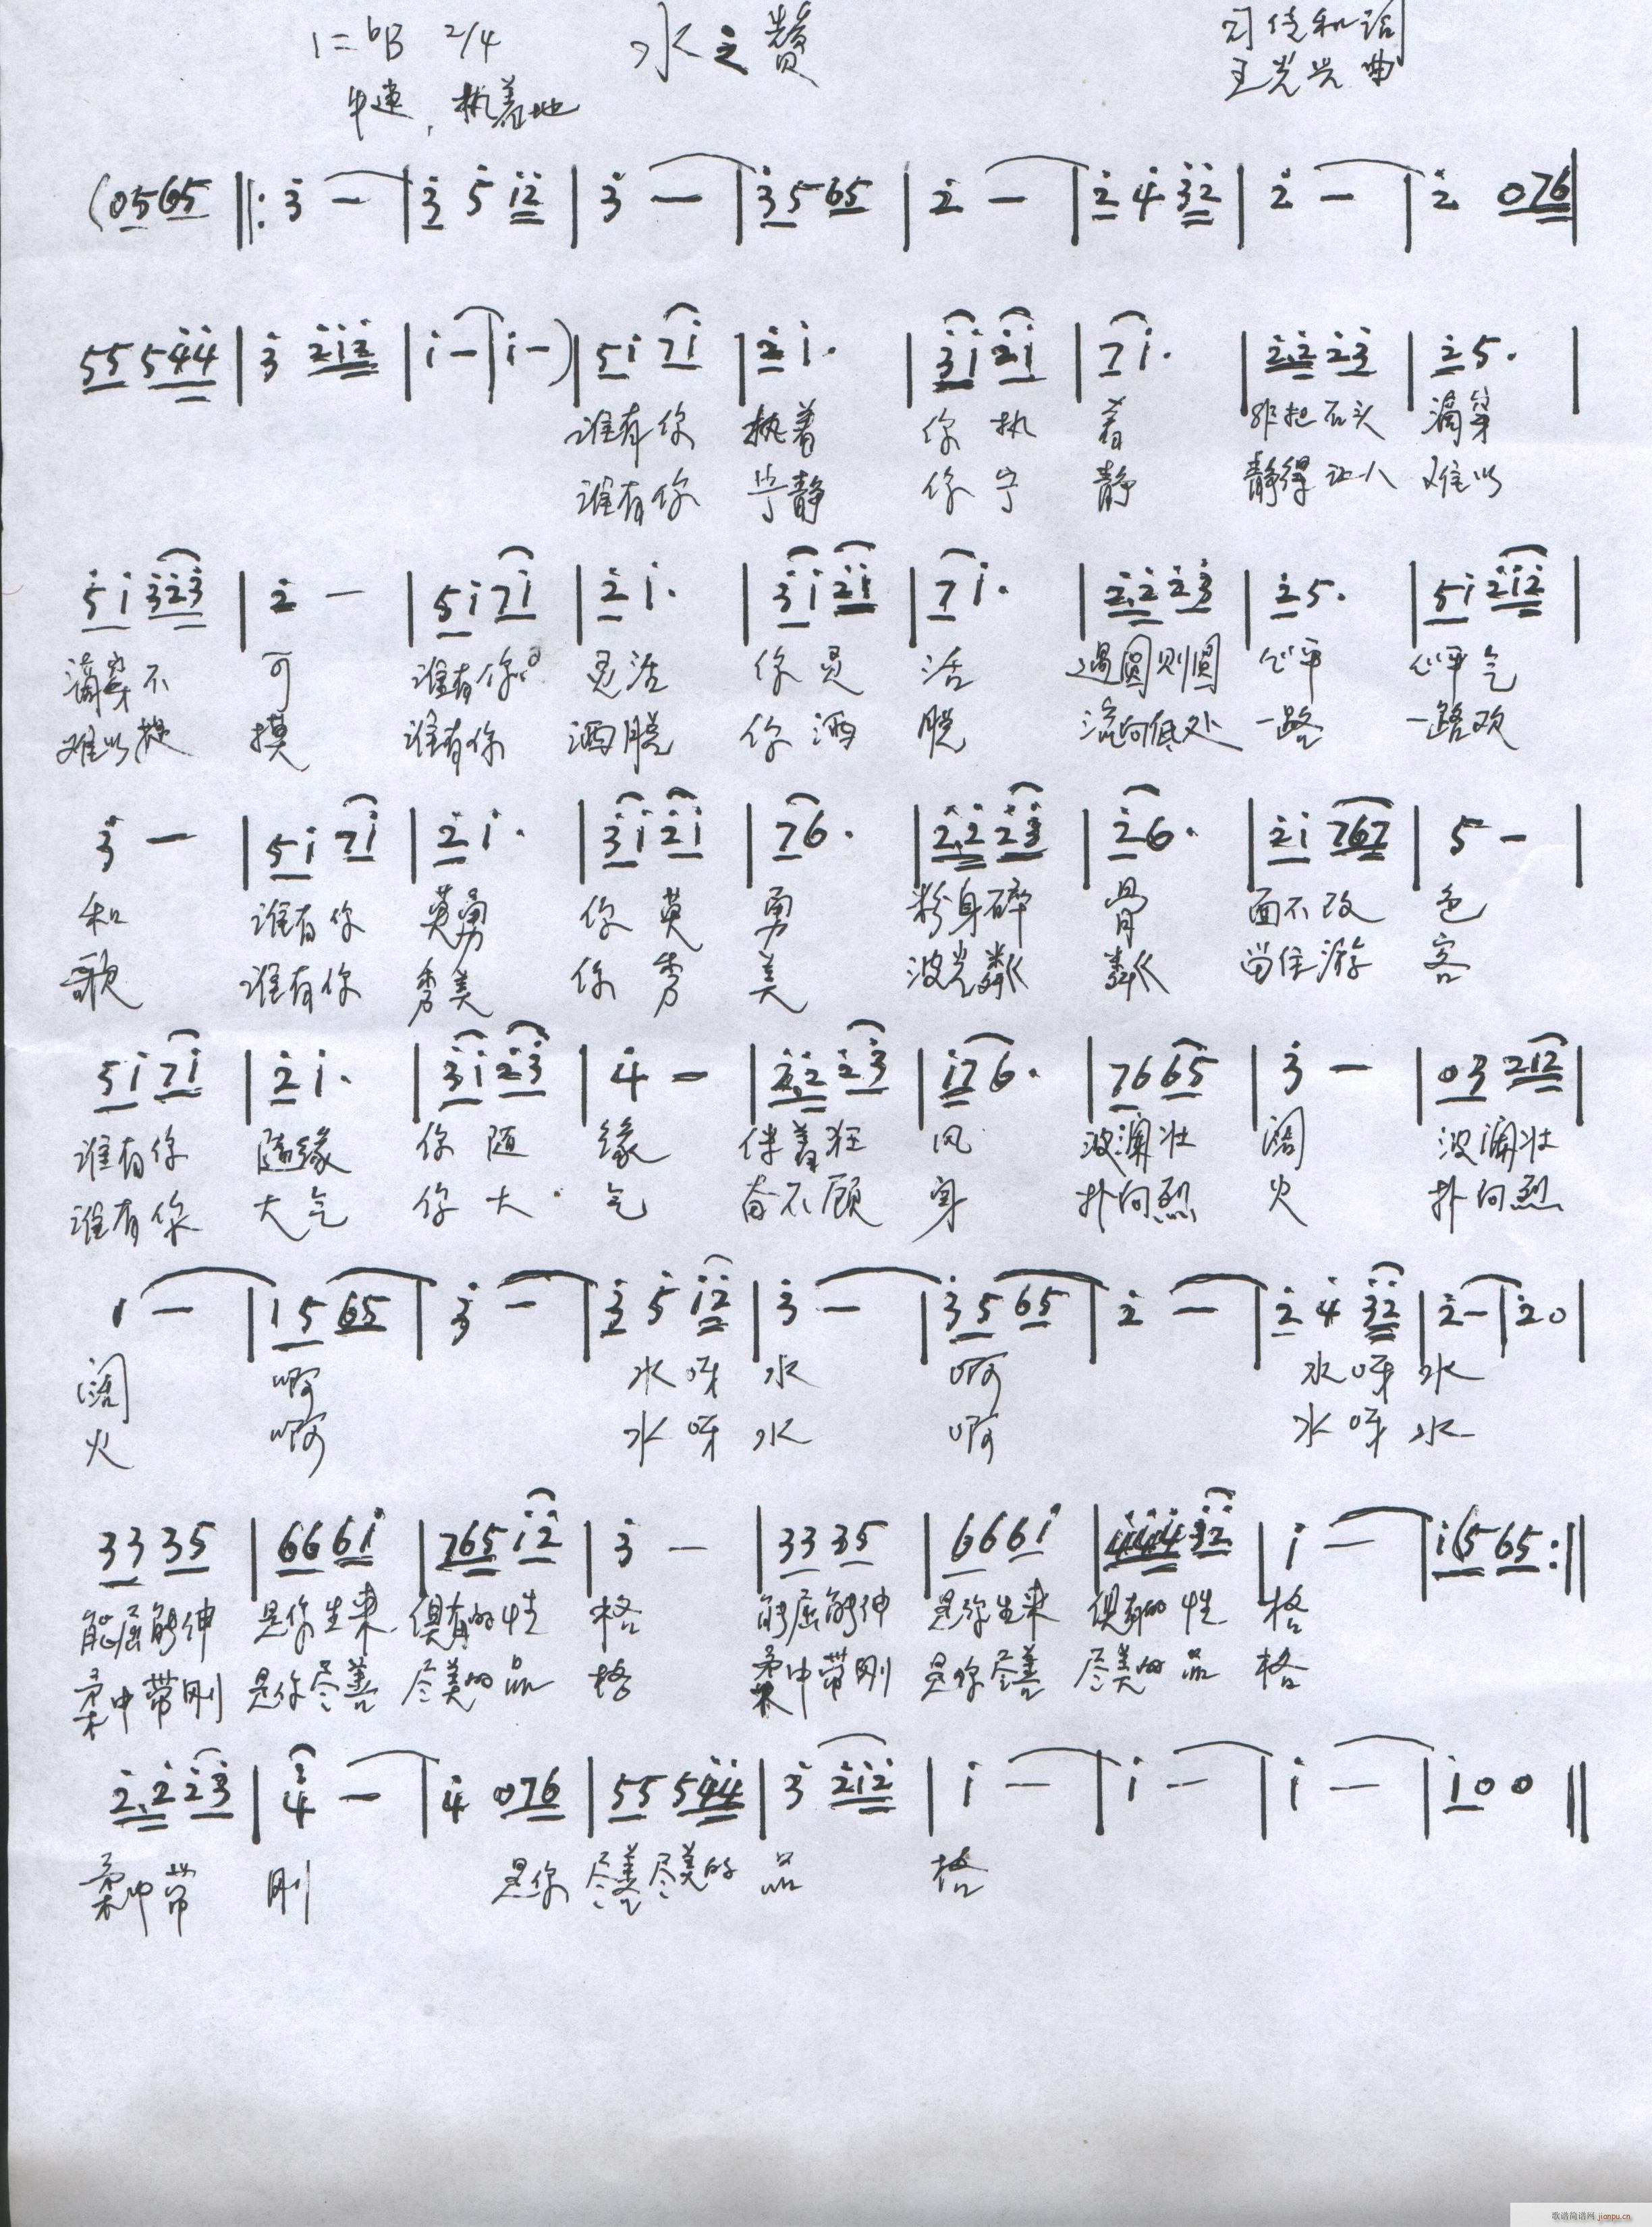 1=♭B 2/4 水之赞 佳和词
中速，执着地 王光兴 曲
(0565 ‖: 3̇ — | 3̇ 5̇ 1̇2̇ | 3̇ — | 3̇5 65 | 2̇ — | 2̇ 4̇ 3̇2̇ | 2̇ — | 2̇ 076 |
55 544̇ | 3̇ 2̇1̇2̇ | 1̇ — | 1̇ —) | 51̇ 71̇ | 2̇1̇. | 3̇1̇ 2̇1̇ | 71̇. | 2̇.2̇ 2̇3̇ | 2̇5. |
谁有你 执着 你 执 着 非把石头 滴穿
谁有你 宁静 你 宁 静 静得让人 难以
5̇1̇ 3̇2̇3̇ | 2̇ — | 51̇ 71̇ | 2̇1̇. | 3̇1̇ 2̇1̇ | 71̇. | 2̇.2̇ 2̇3̇ | 2̇5. | 51̇ 2̇1̇2̇ |
滴穿不 可 谁有你 灵活 你 灵 活 遇圆则圆 心平 心平气
难以捉 摸 谁有你 洒脱 你 洒 脱 流向低处 一路 一路欢
3̇ — | 51̇ 71̇ | 2̇1̇. | 3̇1̇ 2̇1̇ | 76. | 2̇.2̇ 2̇3̇ | 2̇6. | 2̇1̇ 767 | 5 — |
和 谁有你 英勇 你 英 勇 粉身碎 骨 面不改 色
歌 谁有你 秀美 你 秀 美 波光粼 粼 留住游 客
51̇ 71̇ | 2̇1̇. | 3̇1̇ 2̇3̇ | 4̇ — | 2̇.2̇ 2̇3̇ | 1̇76. | 76 65 | 3̇ — | 03 21̇2̇ |
谁有你 随缘 你 随 缘 伴着狂 风 波澜壮 阔 波澜壮
谁有你 大气 你 大 气 奋不顾 身 扑向烈 火 扑向烈
1 — | 15 65 | 3̇ — | 3̇ 5̇ 1̇2̇ | 3̇ — | 3̇5 65 | 2̇ — | 2̇ 4̇ 3̇2̇ | 2̇ — | 2̇0 |
阔 啊 水呀 水 啊 水呀 水
火 啊 水呀 水 啊 水呀 水
33 35 | 66 61̇ | 765 1̇2̇ | 3̇ — | 33 35 | 66 61̇ | 4̇4̇4̇ 3̇2̇ | 1̇ — | 1̇(5 65 :‖
能屈能伸 是你生来 俱有的性 格 能屈能伸 是你生来 俱有的性 格
柔中带刚 是你尽善 尽美的品 格 柔中带刚 是你尽善 尽美的品 格
2̇.2̇ 2̇3̇ | 4̇ — | 4̇ 076 | 55 544̇ | 3̇ 2̇1̇2̇ | 1̇ — | 1̇ — | 1̇ — | 1̇00 ‖
柔中带 刚 是你 尽善尽美的 品 格
歌谱简谱网 jianpu.cn